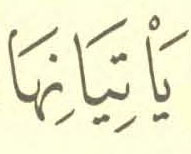 يَأْتِيَانِهَا